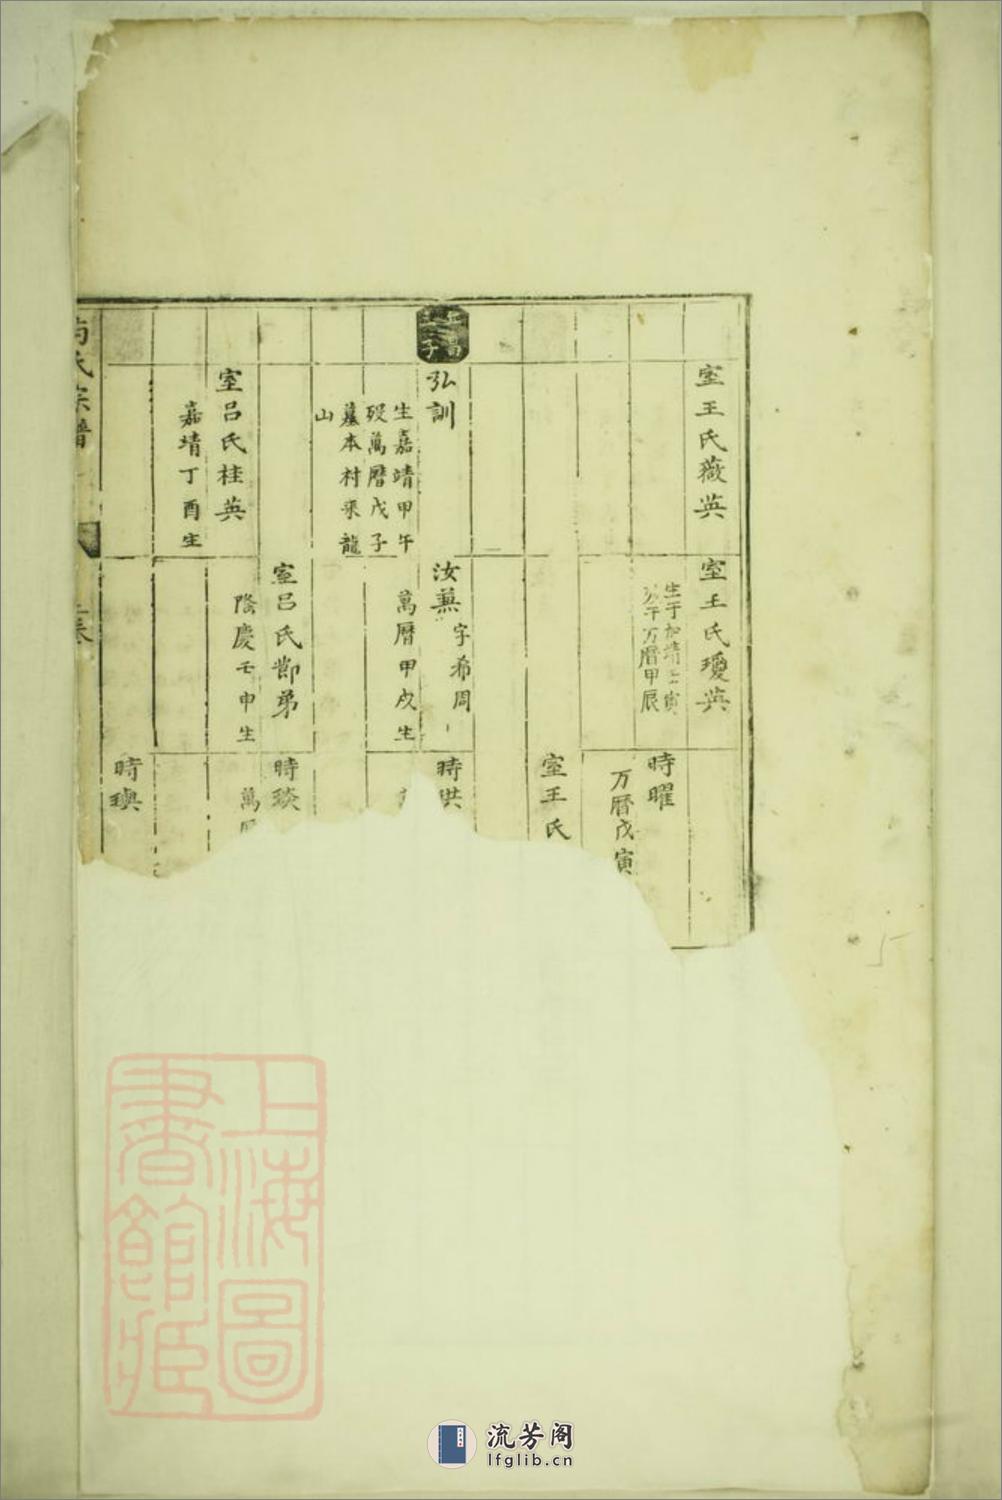 室王氏薇英
室王氏瓊英
生于加靖壬寅
万暦甲辰
時曜
万暦戊寅
室王氏
弘訓
生嘉靖甲午
殁萬曆戊子
墓本村來龍
山
汝蕪字希周
萬曆甲戌生
時洪
室呂氏節弟
隆慶壬申生
時琰
萬
室呂氏桂英
嘉靖丁酉生
時璵
氏宗譜
上海圖書館藏
流芳阁
lfglib.cn